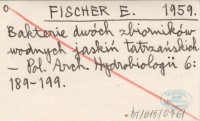 FISCHER E. 1959.
Bakterie dwóch zbiorników
wodnych jaskiń Tatrzańskich.
— Pol. Arch. Hydrobiologii 6:
189-199.